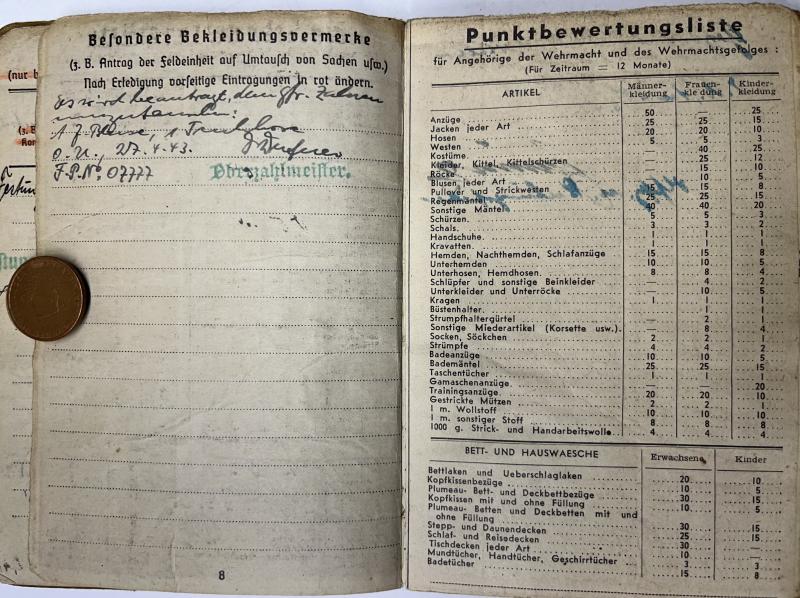 (nur b
Besondere Bekleidungsvermerke
(z. B. Antrag der Feldeinheit auf Umtausch von Sachen usw.)
Nach Erledigung vorseitige Eintragungen in rot ändern.
Es wird beantragt, dem
umzutauschen:
1 F. Bluse, 1 Tuchhose
O. U., 27. 4. 43.
F.P.No 07777
Oberzahlmeister.
8
Punktbewertungsliste
für Angehörige der Wehrmacht und des Wehrmachtsgefolges :
(Für Zeitraum = 12 Monate)
ARTIKEL Männer-kleidung Frauen-kleidung Kinder-kleidung
Anzüge 50 — 25
Jacken jeder Art 25 25 15
Hosen 20 20 10
Westen 5 5 3
Kostüme — 40 25
Kleider, Kittel, Kittelschürzen — 25 12
Röcke — 15 10
Blusen jeder Art — 10 5
Pullover und Strickwesten 15 15 8
Regenmäntel 25 25 15
Sonstige Mäntel 40 40 20
Schürzen 5 5 3
Schals 3 3 2
Handschuhe 1 1 1
Kravatten 1 1 1
Hemden, Nachthemden, Schlafanzüge 15 15 8
Unterhemden 10 10 5
Unterhosen, Hemdhosen 8 8 4
Schlüpfer und sonstige Beinkleider — 4 2
Unterkleider und Unterröcke — 10 5
Kragen 1 1 1
Büstenhalter — 1 1
Strumpfhaltergürtel — 2 1
Sonstige Miederartikel (Korsette usw.) — 8 4
Socken, Söckchen 2 2 1
Strümpfe 4 4 2
Badeanzüge 10 10 5
Bademäntel 25 25 15
Taschentücher 1 1 1
Gamaschenanzüge — — 20
Trainingsanzüge 20 20 10
Gestrickte Mützen 2 2 1
1 m. Wollstoff 10 10 10
1 m. sonstiger Stoff 8 8 8
1000 g. Strick- und Handarbeitswolle 4 4 4
BETT- UND HAUSWAESCHE Erwachsene Kinder
Bettlaken und Ueberschlaglaken 20 10
Kopfkissenbezüge 10 5
Plumeau- Bett- und Deckbettbezüge 30 15
Kopfkissen mit und ohne Füllung 10 5
Plumeau- Betten und Deckbetten mit und
ohne Füllung 30 15
Stepp- und Daunendecken 25 15
Schlaf- und Reisedecken 30 —
Tischdecken jeder Art 10 —
Mundtücher, Handtücher, Geschirrtücher 3 3
Badetücher 15 8